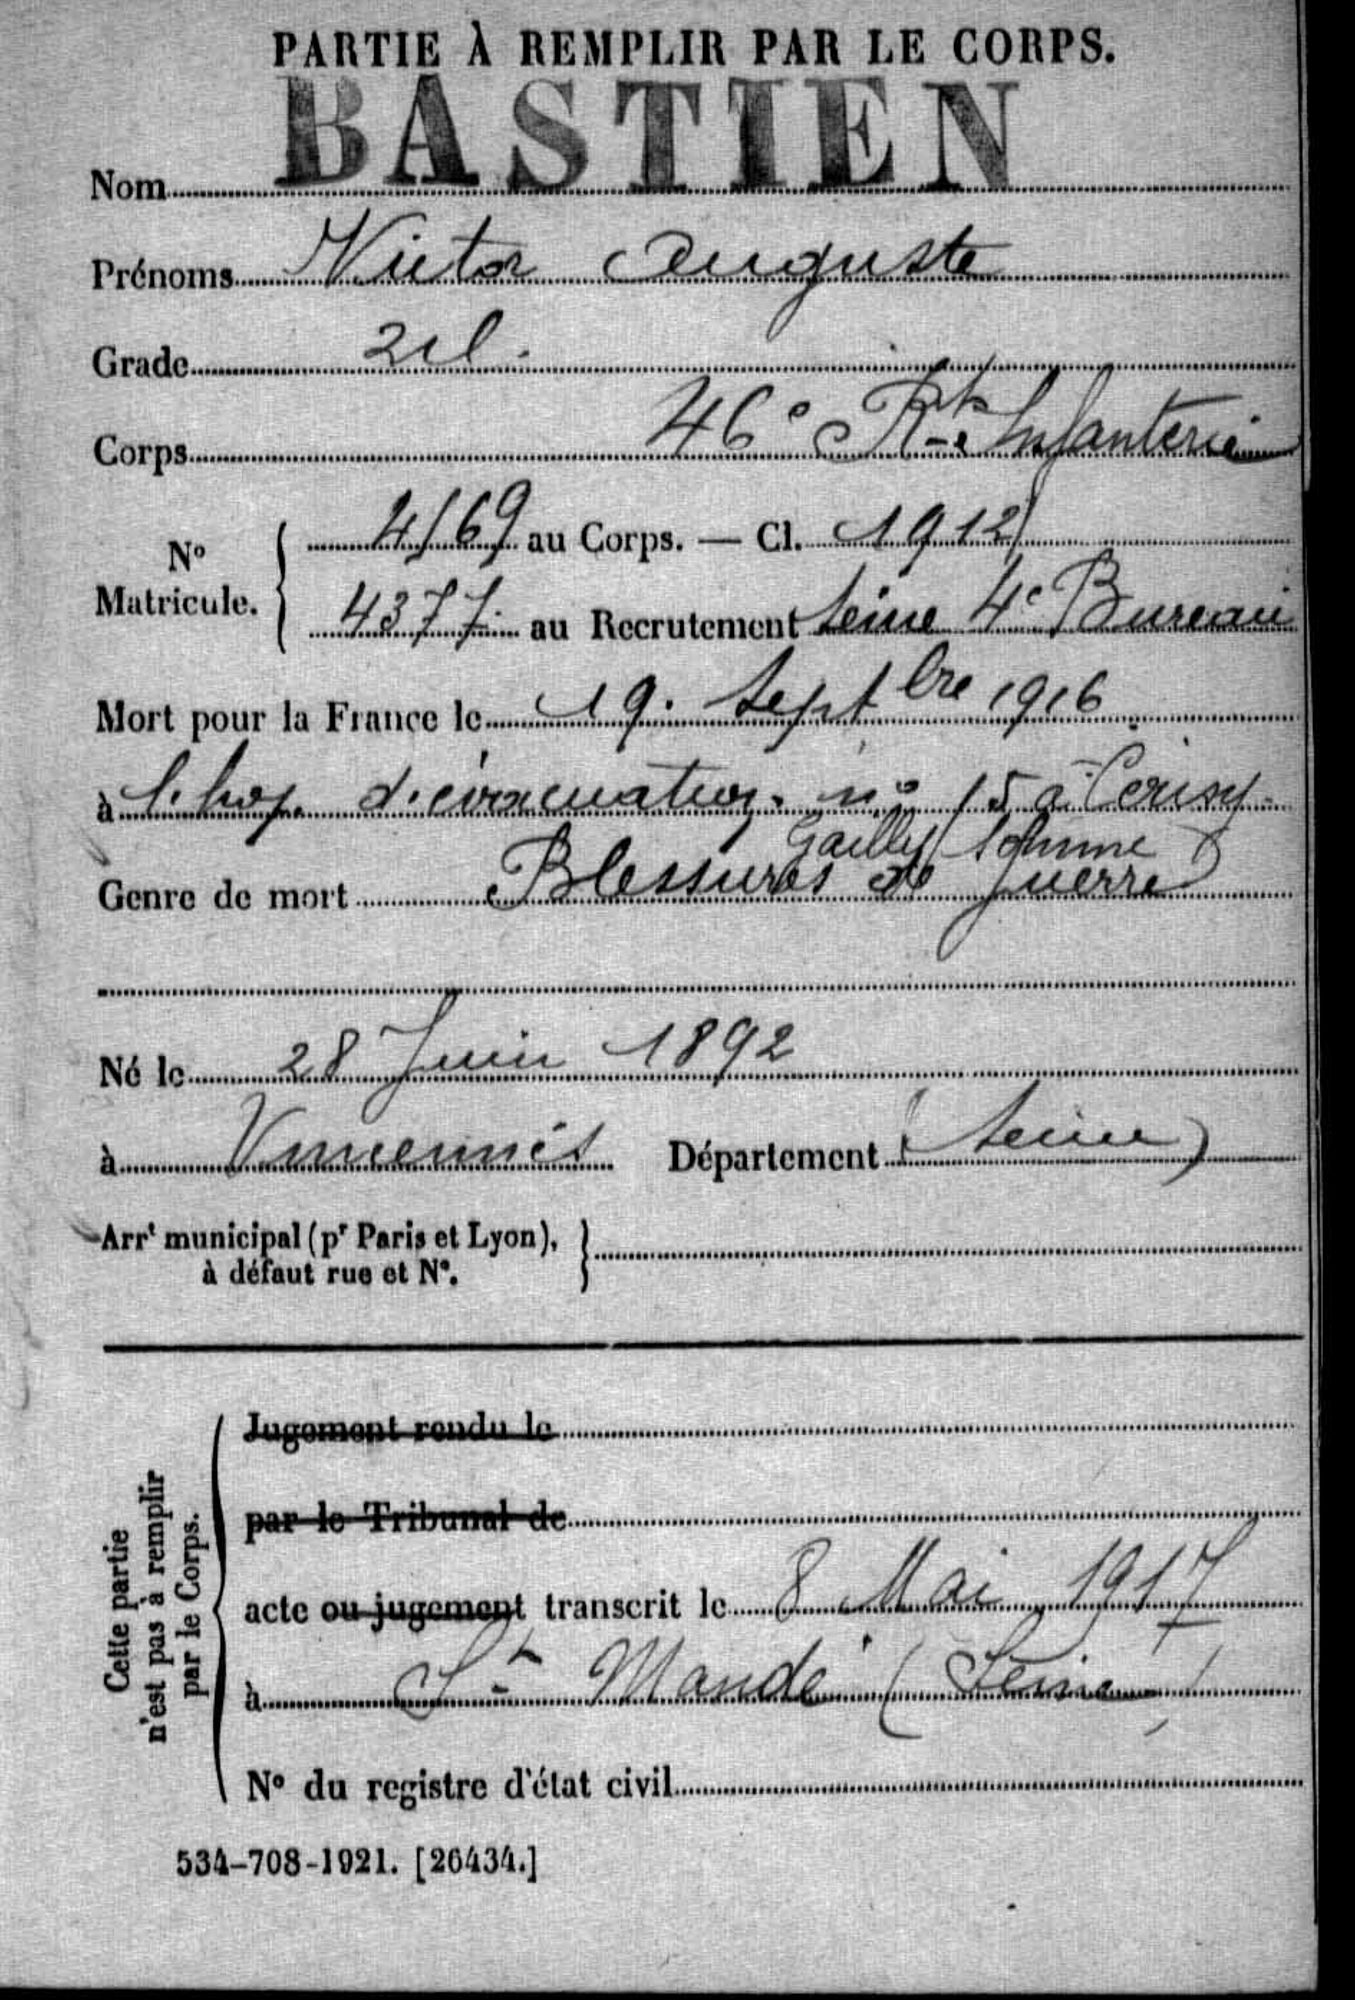 PARTIE À REMPLIR PAR LE CORPS.
Nom BASTIEN
Prénoms Victor Auguste
Grade 2cl.
Corps 46e Rt d'Infanterie
No Matricule. { 4169 au Corps. — Cl. 1912
4377 au Recrutement Seine 4e Bureau
Mort pour la France le 19. Septbre 1916
à l'hop. d'évacuation no 15 à Cerisy-
Gailly Somme
Genre de mort Blessures de guerre
Né le 28 Juin 1892
à Vincennes Département (Seine)
Arrt municipal (pr Paris et Lyon), }
à défaut rue et No.
Cette partie
n'est pas à remplir
par le Corps.
Jugement rendu le
par le Tribunal de
acte ou jugement transcrit le 8 Mai 1917
à St Mandé (Seine)
No du registre d'état civil
534-708-1921. [26434.]